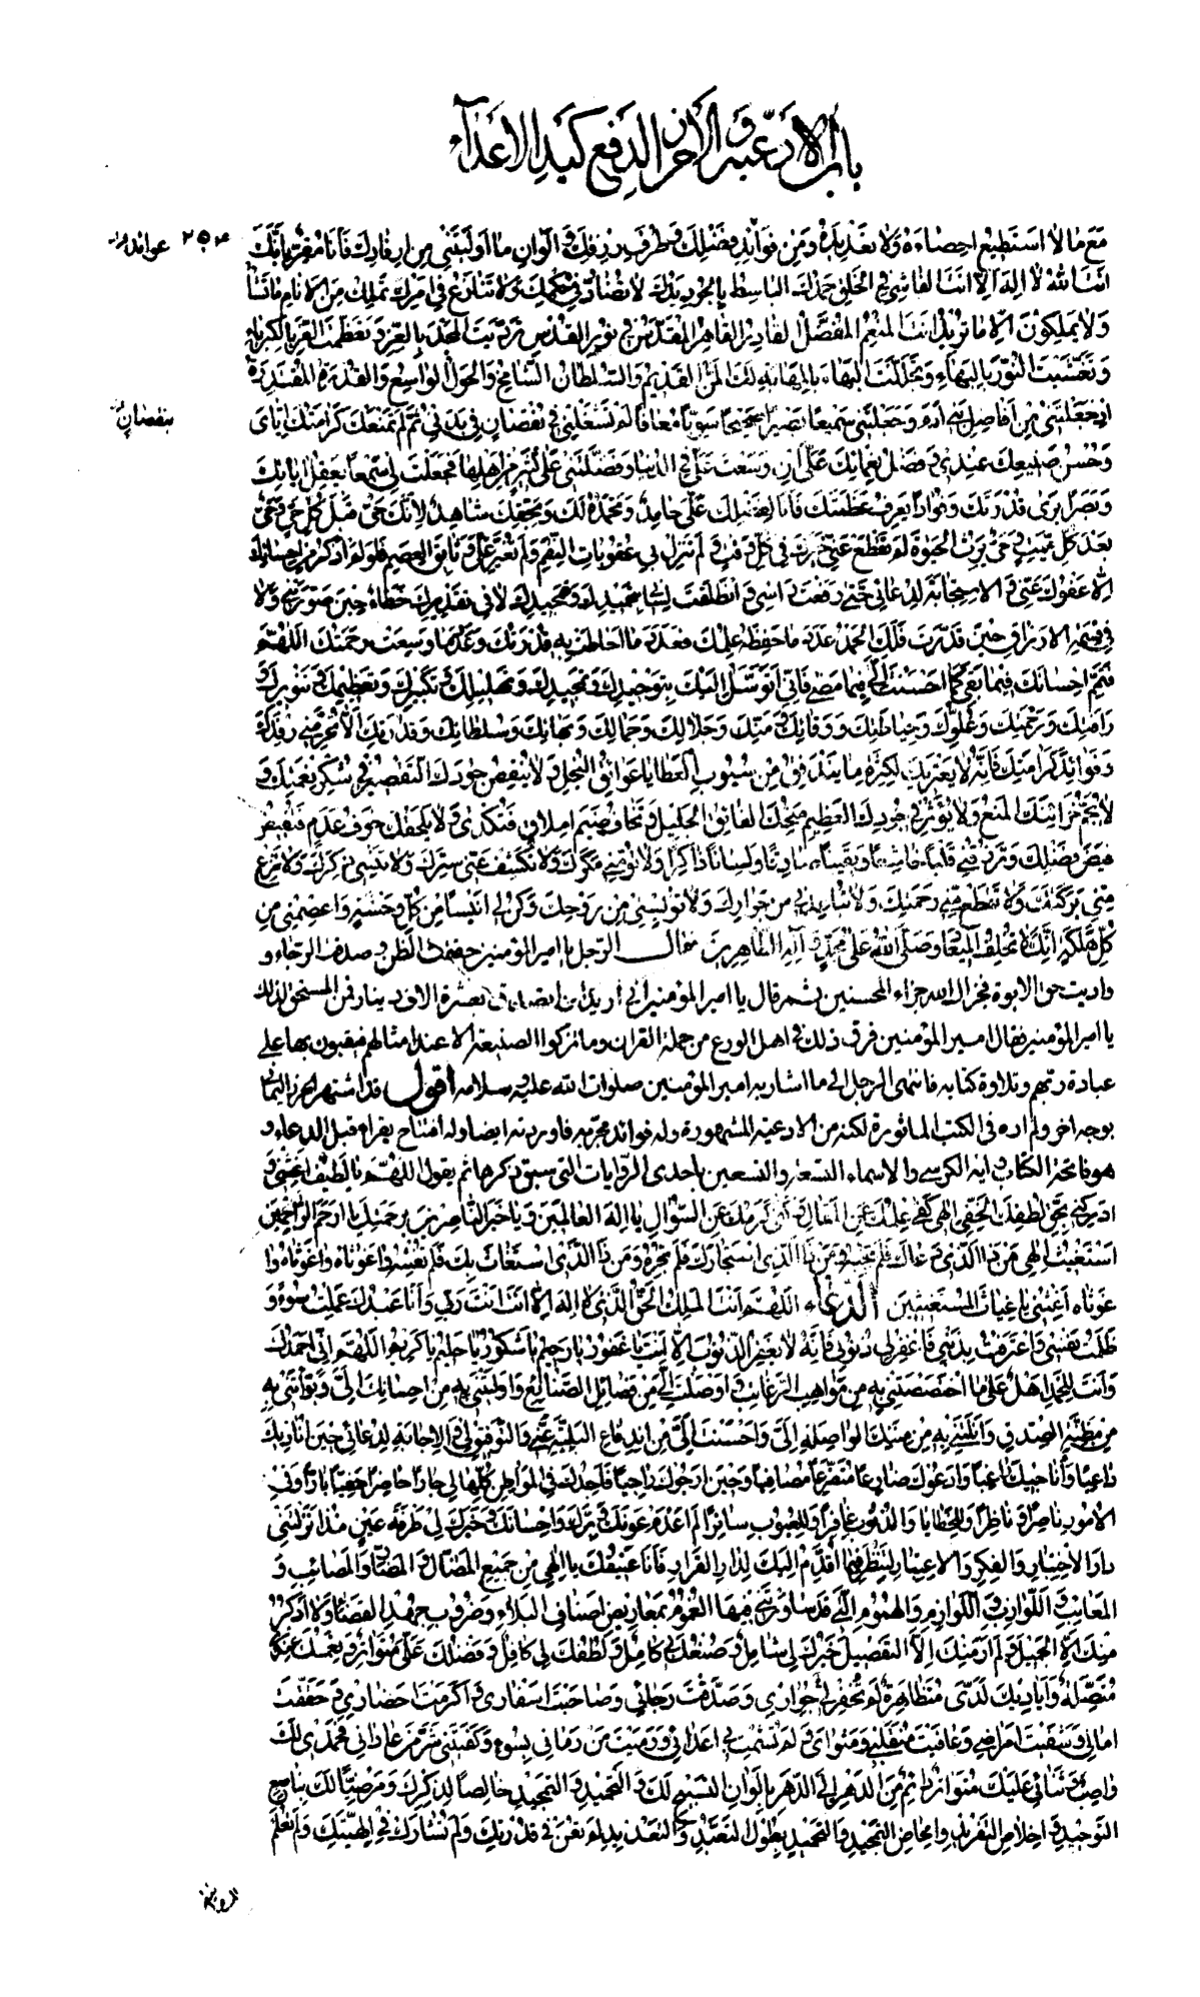 باب الادعية والاحراز لدفع كيد الاعداء
مَعَ مَا لا اَسْتَطيعُ اِحْصاءَهُ وَلا تَعْديدَهُ وَمِنْ فَوائِدِ فَضْلِكَ وَطُرَفِ رِزْقِكَ وَاَلْوانِ ما اَوْلَيْتَنى مِنْ اِرْفادِكَ فَاَنَا مُقِرٌّ بِاَنَّكَ
٢٥٤ عوائد
اَنْتَ اللهُ لا اِلهَ اِلّا اَنْتَ الفاشى فِى الخَلْقِ حَمْدُكَ الباسِطُ بِالجُودِ يَدَكَ لا تُضادُّ فى حُكْمِكَ وَلا تُنازَعُ فى اَمْرِكَ تَمْلِكُ مِنَ الاَنامِ ما تَشآءُ
وَلا يَمْلِكُونَ اِلّا ما تُريدُ اَنْتَ المُنْعِمُ المُفْضِلُ القادِرُ القاهِرُ المُقَدَّسُ فى نُورِ القُدْسِ تَرَدَّيْتَ المَجْدَ بِالعِزِّ وَتَعَظَّمْتَ العِزَّ بِالكِبْرِياءِ
وَتَغَشَّيْتَ النُّورَ بِالبَهاءِ وَتَجَلَّلْتَ البَهاءَ بِالمَهابَةِ لَكَ المَنُّ القَديمُ وَالسُّلْطانُ الشّامِخُ وَالحَوْلُ الواسِعُ وَالقُدْرَةُ المُقْتَدِرَةُ
اِذْ جَعَلْتَنى مِنْ اَفاضِلِ بَنى ادَمَ وَجَعَلْتَنى سَميعًا بَصيرًا صَحيحًا سَوِيًّا مُعافًا لَمْ تَشْغَلْنى فى نُقْصانٍ فى بَدَنى ثُمَّ لَمْ تَمْنَعْكَ كَرامَتُكَ اِيّاىَ
بنقصانٍ
وَحُسْنُ صَنيعِكَ عِنْدى وَفَضْلُ نَعْمائِكَ عَلَىَّ اِذْ وَسَّعْتَ عَلَىَّ فِى الدُّنْيا وَفَضَّلْتَنى عَلى كَثيرٍ مِنْ اَهْلِها فَجَعَلْتَ لى سَمْعًا يَعْقِلُ اياتِكَ
وَبَصَرًا يَرى قُدْرَتَكَ وَفُؤادًا يَعْرِفُ عَظَمَتَكَ فَاَنَا لِفَضْلِكَ عَلَىَّ حامِدٌ وَتَحْمَدُهُ لَكَ وَبِحَقِّكَ شاهِدٌ لِاَنَّكَ حَىٌّ قَبْلَ كُلِّ حَىٍّ وَحَىٌّ
بَعْدَ كُلِّ مَيِّتٍ وَحَىٌّ تَرِثُ الحَيوةَ لَمْ تَقْطَعْ عَنّى خَيْرَكَ فى كُلِّ وَقْتٍ وَلَمْ تُنْزِلْ بى عُقُوباتِ النِّقَمِ وَلَمْ تُغَيِّرْ عَلَىَّ وَثائِقَ العِصَمِ فَلَوْ لَمْ اَذْكُرْ مِنْ اِحْسانِكَ
اِلّا عَفْوَكَ عَنّى وَالاِسْتِجابَةَ لِدُعائى حينَ رَفَعْتُ رَأْسى وَانْطَلَقَتْ لِسانى بِتَحْميدِكَ وَتَمْجيدِكَ لا فى تَقْديرِكَ خَطاءً حينَ صَوَّرْتَنى وَلا
فى قِسْمَةِ الاَرْزاقِ حينَ قَدَّرْتَ فَلَكَ الحَمْدُ عَدَدَ ما حَفِظَهُ عِلْمُكَ وَعَدَدَ ما اَحاطَتْ بِهِ قُدْرَتُكَ وَعَدَدَ ما وَسِعَتْ رَحْمَتُكَ اَللّهُمَّ
فَتَمِّمْ اِحْسانَكَ فيما بَقِىَ كَما اَحْسَنْتَ اِلَىَّ فيما مَضى فَاِنّى اَتَوَسَّلُ اِلَيْكَ بِتَوْحيدِكَ وَتَمْجيدِكَ وَتَهْليلِكَ وَتَكْبيرِكَ وَتَعْظيمِكَ وَتَنْويرِكَ وَ
رَأْفَتِكَ وَرَحْمَتِكَ وَعُلُوِّكَ وَحِياطَتِكَ وَوَقائِكَ وَمَنِّكَ وَجَلالِكَ وَجَمالِكَ وَبَهائِكَ وَسُلْطانِكَ وَقُدْرَتِكَ اَلّا تَحْرِمَنى رِفْدَكَ
وَفَوائِدَ كَرامَتِكَ فَاِنَّهُ لا يَعْتَريكَ لِكَثْرَةِ ما يَنْدَفِقُ مِنْ سُيُوبِ العَطايا عَوائِقُ البُخْلِ وَلا يَنْقُصُ جُودَكَ التَّقْصيرُ فى شُكْرِ نِعْمَتِكَ وَ
لا يُجِمُّ خَزائِنَكَ المَنْعُ وَلا يُؤَثِّرُ فى جُودِكَ العَظيمِ مِنَحُكَ الفائِقُ الجَليلُ وَلا تَخافُ ضَيْمَ اِمْلاقٍ فَتُكْدِىَ وَلا يَلْحَقُكَ خَوْفُ عَدَمٍ فَتَقْبِضَ
فَيْضَ فَضْلِكَ وَتَرْزُقَنى قَلْبًا خاشِعًا وَيَقينًا صادِقًا وَلِسانًا ذاكِرًا وَلا تُؤْمِنّى مَكْرَكَ وَلا تَكْشِفْ عَنّى سِتْرَكَ وَلا تُنْسِنى ذِكْرَكَ وَلا تَنْزِعْ
مِنّى بَرَكَتَكَ وَلا تَقْطَعْ مِنّى رَحْمَتَكَ وَلا تُباعِدْنى مِنْ جِوارِكَ وَلا تُؤْيِسْنى مِنْ رَوْحِكَ وَكُنْ لى اَنيسًا مِنْ كُلِّ وَحْشَةٍ وَاعْصِمْنى مِنْ
كُلِّ هَلَكَةٍ اِنَّكَ لا تُخْلِفُ الميعادَ وَصَلَّى اللهُ عَلى مُحَمَّدٍ وَالِهِ الطّاهِرينَ فقال الرجل يا امير المؤمنين حققت الظن وصدقت الرجاء و
واديت حق الابوة فجزاك الله جزاء المحسنين ثم قال يا امير المؤمنين انى اريد ان اتصدق بعشرة الاف دينار فمن المستحق لذلك
يا امير المؤمنين فقال امير المؤمنين فرق ذلك فى اهل الورع من حملة القران وما تزكوا الصنيعة الا عند امثالهم فيقبون بها على
عبادة ربهم وتلاوة كتابه فانتهى الرجل الى ما اشار به امير المؤمنين صلوات الله عليه وسلامه اقول قد اشتهر حرز اليماني
بوجه اخر ولم اره فى الكتب الماثورة لكنه من الادعية المشهورة وله فوائد مجربة فاوردته ايضا وله افتتاح يقراء قبل الدعاء و
هو فاتحة الكتاب واية الكرسى والاسماء التسعة والتسعين باحدى الروايات التى سبق ذكرها ثم يقول اَللّهُمَّ يا لَطيفُ اَغِثْنى وَ
اَدْرِكْنى بِحَقِّ لُطْفِكَ الخَفِىِّ اِلهى كَفى عِلْمُكَ عَنِ المَقالِ وَكَفى كَرَمُكَ عَنِ السُّؤالِ يا اِلهَ العالَمينَ وَيا خَيْرَ النّاصِرينَ بِرَحْمَتِكَ يا اَرْحَمَ الرّاحِمينَ
اَسْتَغيثُ اِلهى مَنْ ذَا الَّذى دَعاكَ فَلَمْ تُجِبْهُ وَمَنْ ذَا الَّذى اسْتَجارَكَ فَلَمْ تُجِرْهُ وَمَنْ ذَا الَّذى اسْتَغاثَ بِكَ فَلَمْ تُغِثْهُ واغَوْثاهُ واغَوْثاهُ وا
غَوْثاهُ اَغِثْنى يا غِياثَ المُسْتَغيثينَ الدعاء اَللّهُمَّ اَنْتَ المَلِكُ الحَقُّ الَّذى لا اِلهَ اِلّا اَنْتَ اَنْتَ رَبّى وَاَنَا عَبْدُكَ عَمِلْتُ سُوءً وَ
ظَلَمْتُ نَفْسى وَاعْتَرَفْتُ بِذَنْبى فَاغْفِرْ لى ذُنُوبى فَاِنَّهُ لا يَغْفِرُ الذُّنُوبَ اِلّا اَنْتَ يا غَفُورُ يا رَحيمُ يا شَكُورُ يا حَليمُ يا كَريمُ اَللّهُمَّ اِنّى اَحْمَدُكَ
وَاَنْتَ لِلْحَمْدِ اَهْلٌ عَلى ما اخْتَصَصْتَنى بِهِ مِنْ مَواهِبِ الرَّغائِبِ وَاَوْصَلْتَ اِلَىَّ مِنْ فَضائِلِ الصَّنائِعِ وَاَوْلَيْتَنى بِهِ مِنْ اِحْسانِكَ اِلَىَّ وَبَوَّأْتَنى بِهِ
مِنْ مَظِنَّةِ الصِّدْقِ وَاَنَلْتَنى بِهِ مِنْ مِنَنِكَ الواصِلَةِ اِلَىَّ وَاَحْسَنْتَ اِلَىَّ مِنْ اِنْدِفاعِ البَلِيَّةِ عَنّى وَالتَّوْفيقِ لى وَالاِجابَةِ لِدُعائى حينَ اُناديكَ
داعِيًا وَاُناجيكَ راغِبًا وَاَدْعُوكَ ضارِعًا مُتَضَرِّعًا مُصافِيًا وَحينَ اَرْجُوكَ راجِيًا فَاَجِدُكَ فِى المَواطِنِ كُلِّها لى جارًا حاضِرًا حَفِيًّا بارًّا وَفِى
الاُمُورِ ناصِرًا وَناظِرًا وَلِلْخَطايا وَالذُّنُوبِ غافِرًا وَلِلْعُيُوبِ ساتِرًا لَمْ اَعْدَمْ عَوْنَكَ وَبِرَّكَ وَاِحْسانَكَ وَخَيْرَكَ لى طَرْفَةَ عَيْنٍ مُنْذُ اَنْزَلْتَنى
دارَ الاِخْتِبارِ وَالفِكْرِ وَالاِعْتِبارِ لِتَنْظُرَ فيما اُقَدِّمُ اِلَيْكَ لِدارِ القَرارِ فَاَنَا عَتيقُكَ يا اِلهى مِنْ جَميعِ المَضالِّ وَالمَضارِّ وَالمَصائِبِ وَ
المَعائِبِ وَاللَّوازِبِ وَاللَّوازِمِ وَالهُمُومِ الَّتى قَدْ ساوَرَتْنى فيهَا الغُمُومُ بِمَعاريضِ اَصْنافِ البَلاءِ وَضُرُوبِ جَهْدِ القَضاءِ وَلا اَذْكُرُ
مِنْكَ اِلّا الجَميلَ وَلَمْ اَرَ مِنْكَ اِلَّا التَّفْضيلَ خَيْرُكَ لى شامِلٌ وَصُنْعُكَ لى كامِلٌ وَلُطْفُكَ لى كافِلٌ وَفَضْلُكَ عَلَىَّ مُتَواتِرٌ وَنِعَمُكَ عِنْدى
مُتَّصِلَةٌ وَاَياديكَ لَدَىَّ مُتَظاهِرَةٌ لَمْ تُخْفِرْ لى جِوارى وَصَدَّقْتَ رَجائى وَصاحَبْتَ اَسْفارى وَاَكْرَمْتَ اِحْضارى وَحَقَّقْتَ
امالى وَشَفَيْتَ اَمْراضى وَعافَيْتَ مُنْقَلَبى وَمَثْواىَ وَلَمْ تُشْمِتْ بى اَعْدائى وَرَمَيْتَ مَنْ رَمانى بِسُوءٍ وَكَفَيْتَنى شَرَّ مَنْ عادانى فَحَمْدى لَكَ
واصِبٌ وَثَنائى عَلَيْكَ مُتَواتِرٌ دائِمٌ مِنَ الدَّهْرِ اِلَى الدَّهْرِ بِاَلْوانِ التَّسْبيحِ لَكَ وَالتَّحْميدِ وَالتَّمْجيدِ خالِصًا لِذِكْرِكَ وَمَرْضِيًّا لَكَ بِناصِعِ
التَّوْحيدِ وَاِخْلاصِ التَّفْريدِ وَاِمْحاضِ التَّمْجيدِ وَالتَّحْميدِ بِطُولِ التَّعَبُّدِ وَالتَّعْديدِ لَمْ تُعَنْ فى قُدْرَتِكَ وَلَمْ تُشارَكْ فى اِلهِيَّتِكَ وَلَمْ تُعْلَمْ